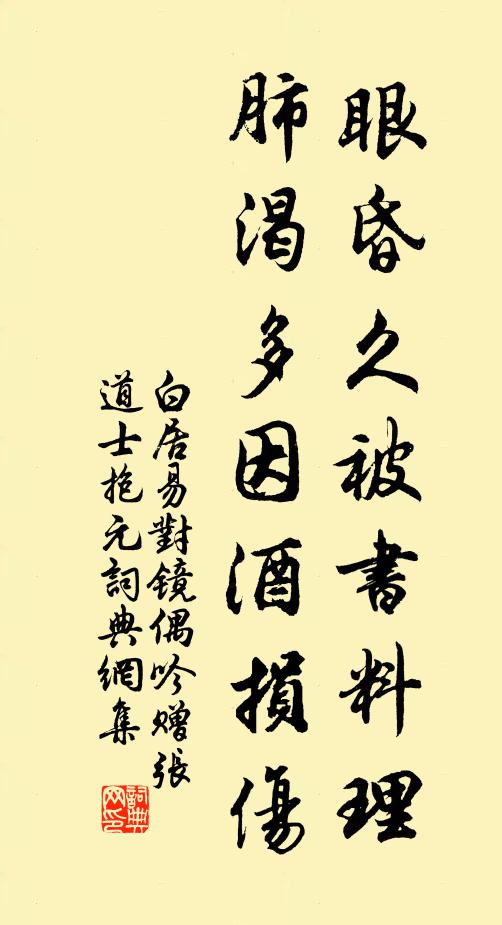 眼昏久被書料理
肺渴多因酒損傷
白居易對鏡偶吟贈張
道士抱元詞典網集
詞典
网印